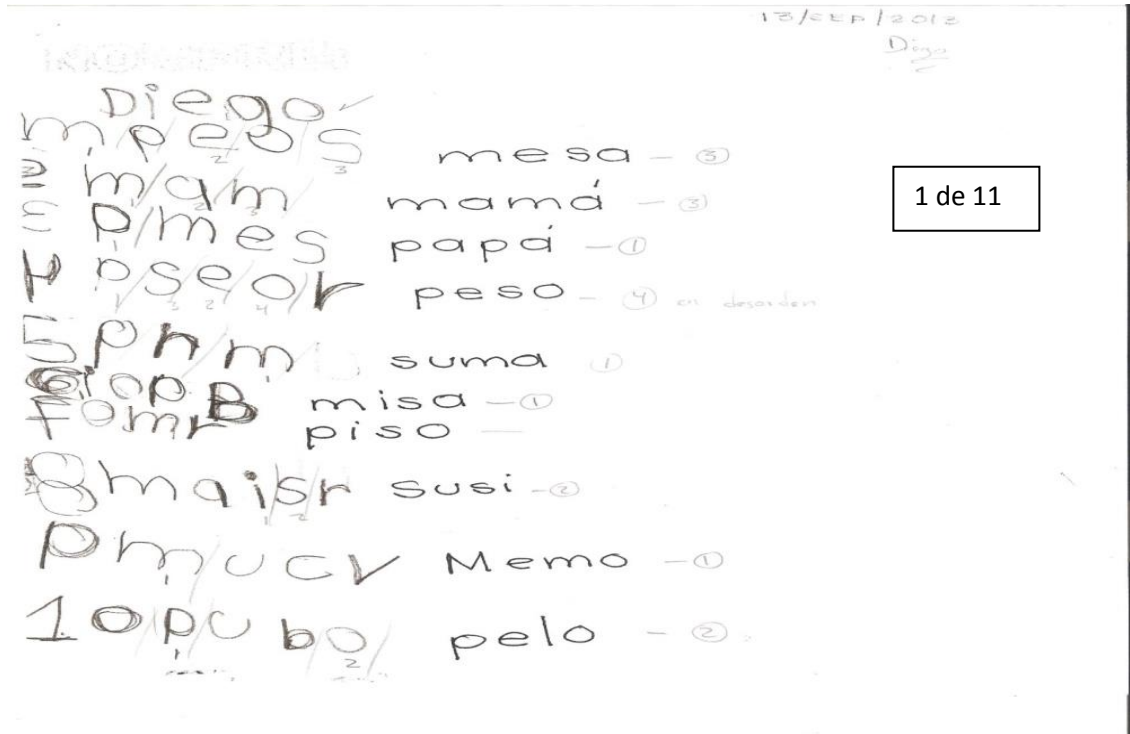 13/SEP/2013
Diego
Diego ✓
m/p/e/o/S mesa - ③
2 m/a/m/ mamá - ③
1 de 11
3 P/m e s papá - ①
4 P/S/e/o/r peso - ④ en desorden
5 P n/m suma ①
6 i o p B misa - ①
7 o m r piso -
8 m a i/S/r susi - ②
P m/u c v Memo - ①
10 o/p/u b/o/ pelo - ②